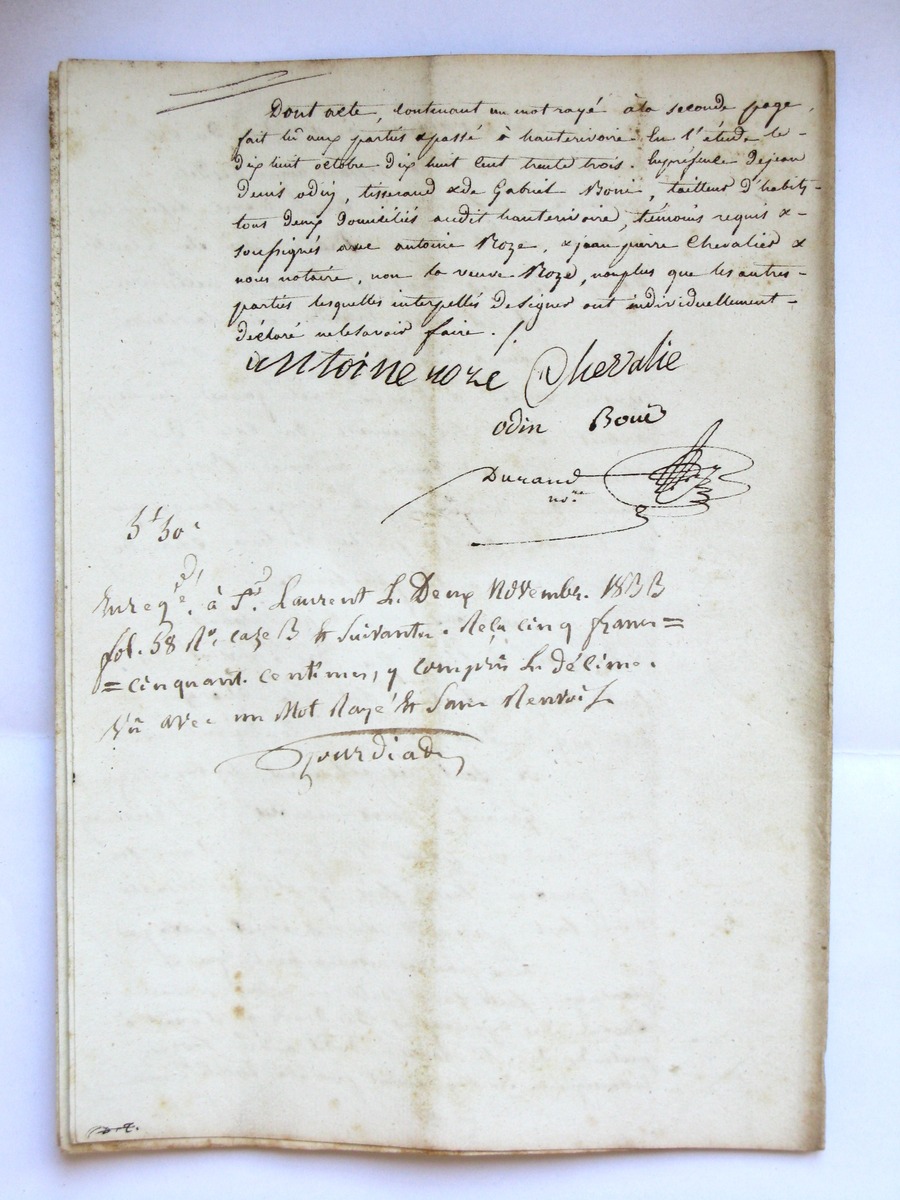 Dont acte, contenant un mot rayé à la seconde page,
fait lu aux parties & passé à hauterivoire En l'étude le-
dix huit octobre dix huit cent trente trois. Enprésence dejean
Denis odin, tisserand & de Gabriel Boué, tailleur d'habits-
tous deux domiciliés audit hauterivoire, témoins requis &-
soussignés avec antoine Roze, & jean pierre Chevalier &
nous notaire, non la veuve Roze, nonplus que les autres-
parties lesquelles interpellés designer ont individuellement-
déclaré nelesavoir faire. /.
antoine roze Chevalie
odin Boué
Durand
nore
5f 50c
Enregé. à St. Laurent Le Deux Novembre 1833
fol. 58 Ro. case 3 & suivantes. Reçu cinq francs =
= cinquante centimes, y compris Le décime.
Vû avec un Mot Rayé & sans Renvoi